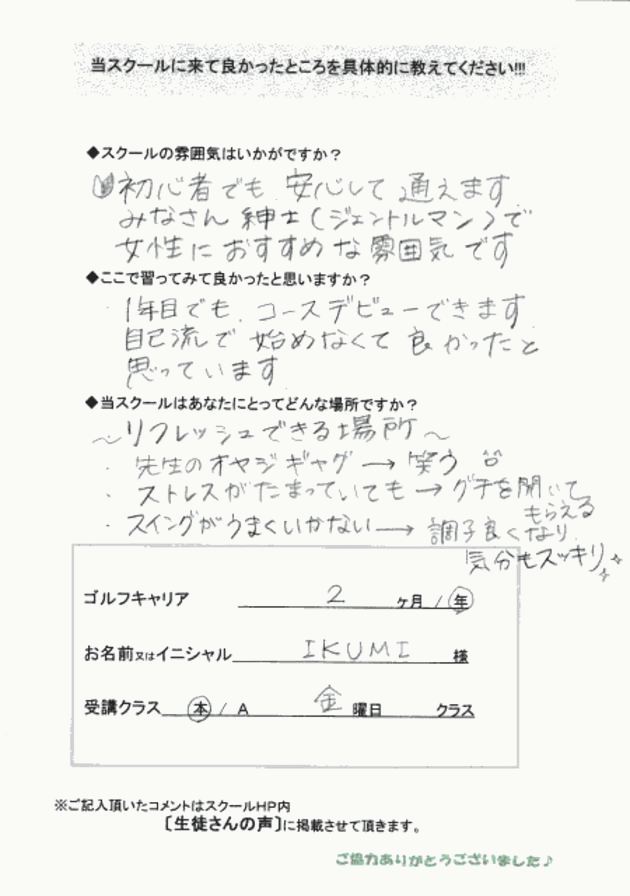 当スクールに来て良かったところを具体的に教えてください!!!
◆スクールの雰囲気はいかがですか？
初心者でも 安心して 通えます
みなさん 紳士(ジェントルマン)で
女性に おすすめ な 雰囲気 です
◆ここで習ってみて良かったと思いますか？
・1年目でも、コースデビューできます
自己流で 始めなくて 良かったと
思っています
◆当スクールはあなたにとってどんな場所ですか？
～リフレッシュできる場所～
・先生のオヤジギャグ → 笑う
・ストレスがたまっていても → グチを聞いて
もらえる
・スイングがうまくいかない → 調子良くなり
気分もスッキリ
ゴルフキャリア 2 ヶ月 / 年
お名前又はイニシャル IKUMI 様
受講クラス 本 / A 金 曜日 クラス
※ご記入頂いたコメントはスクールHP内
〔生徒さんの声〕に掲載させて頂きます。
ご協力ありがとうございました♪